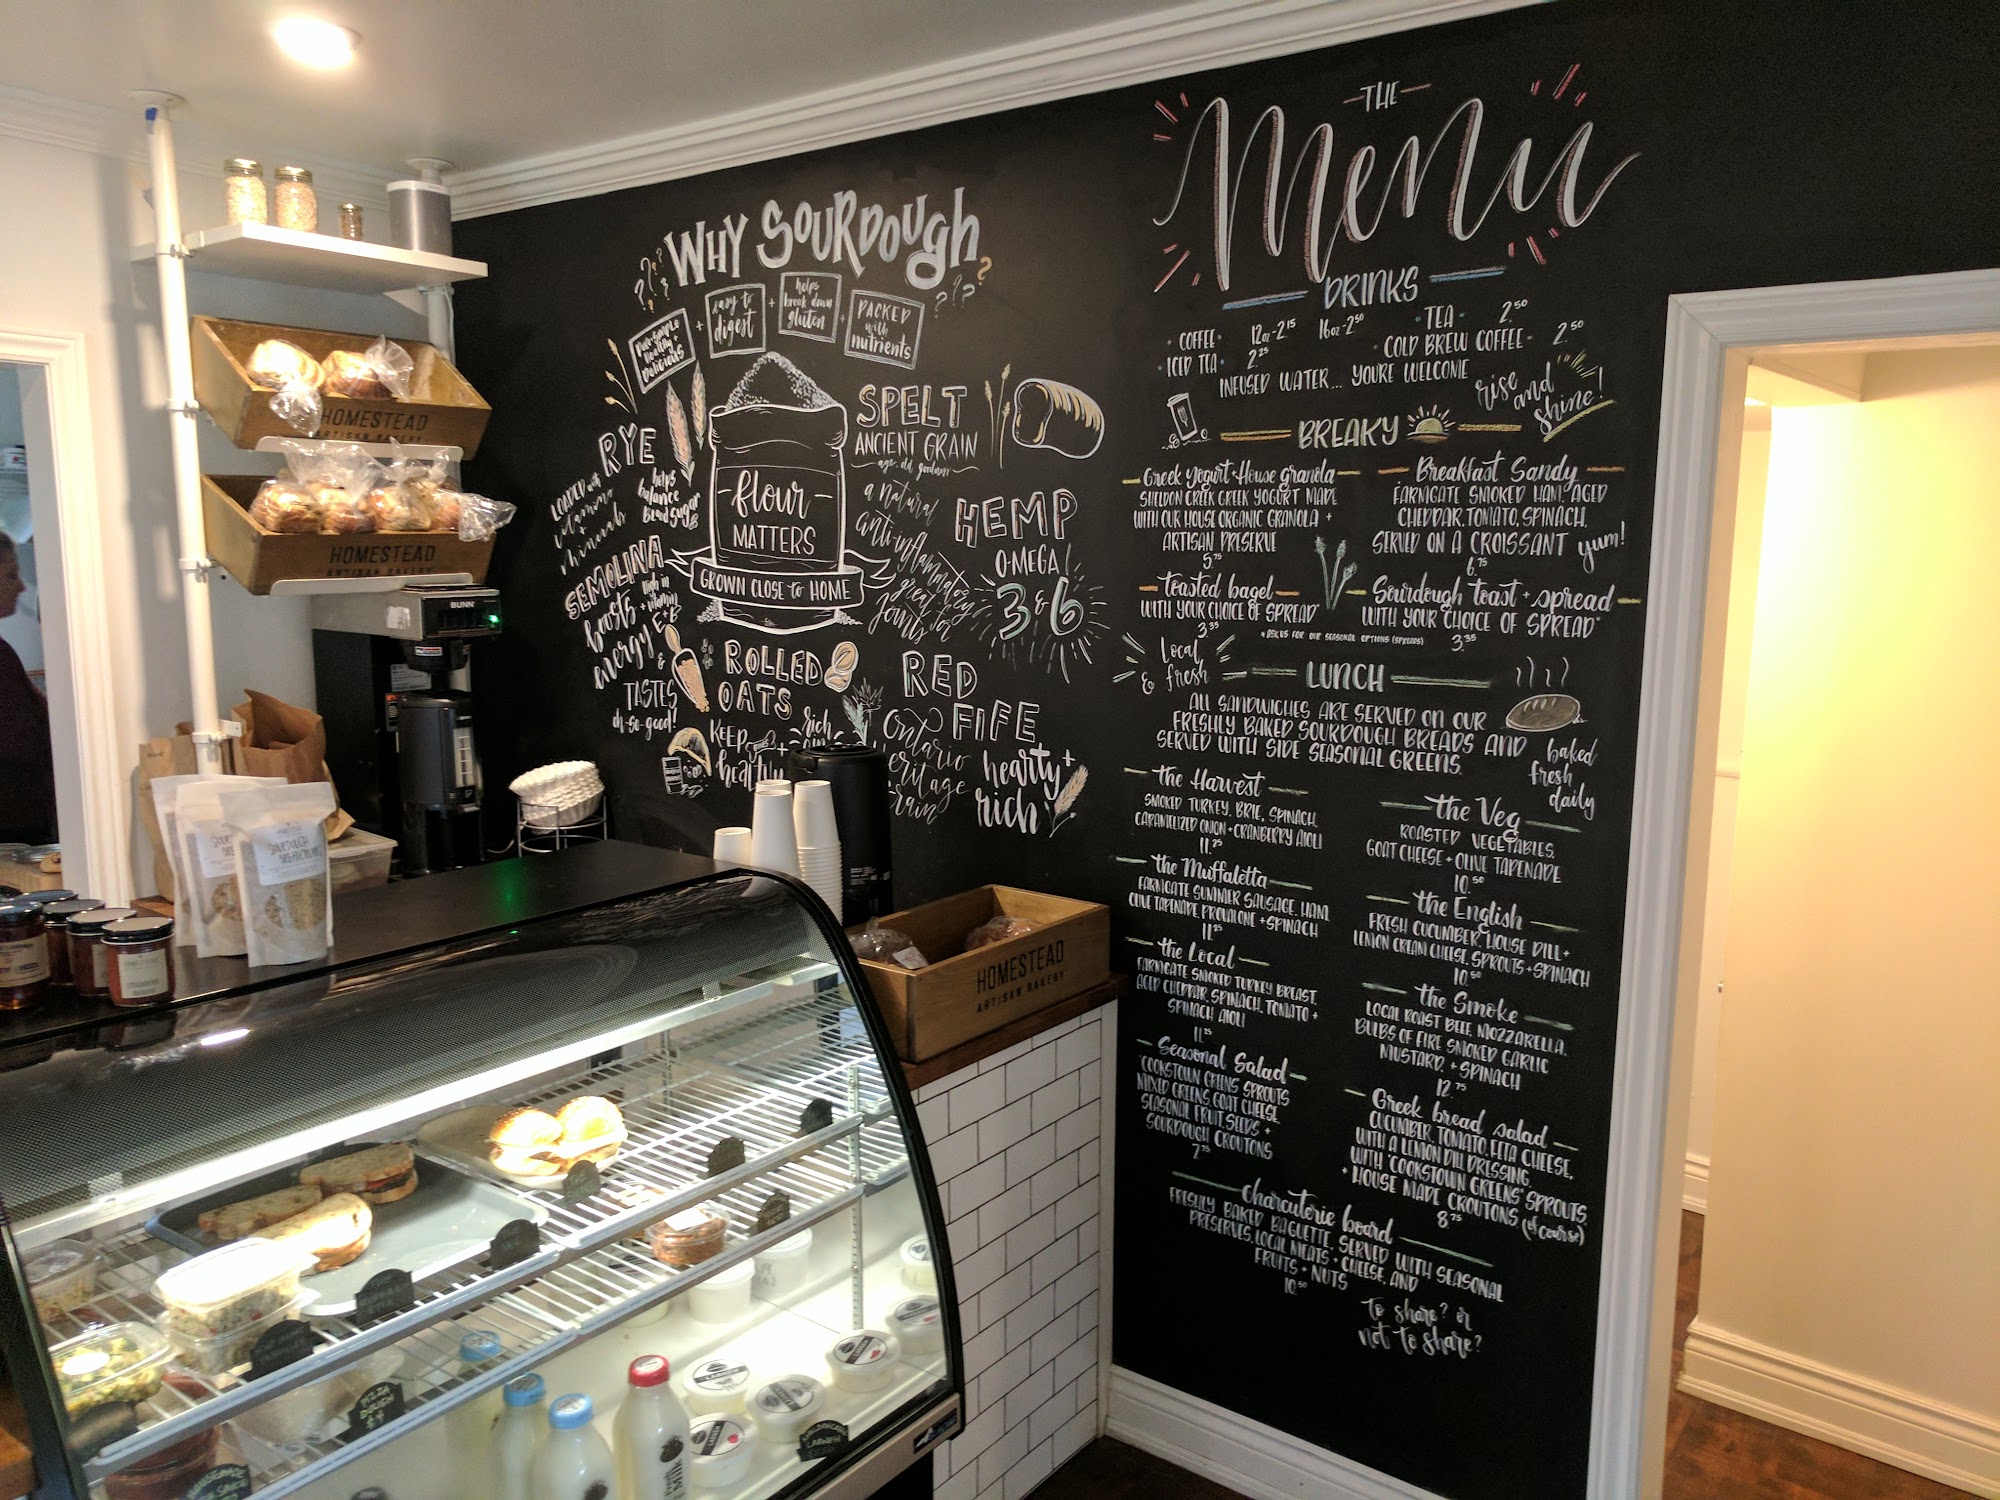 THE
Menu
DRINKS
COFFEE 12oz-2.15 16oz-2.50
ICED TEA 2.25
TEA 2.50
COLD BREW COFFEE- 2.50
INFUSED WATER... YOURE WELCOME
rise and
shine!
BREAKY
Greek Yogurt+House granola
SHELDON CREEK GREEK YOGURT MADE
WITH OUR HOUSE ORGANIC GRANOLA +
ARTISAN PRESERVE
5.75
Breakfast Sandy
FARMGATE SMOKED HAM, AGED
CHEDDAR, TOMATO, SPINACH,
SERVED ON A CROISSANT
6.75
yum!
toasted bagel
WITH YOUR CHOICE OF SPREAD*
3.35
Sourdough toast + spread
WITH YOUR CHOICE OF SPREAD*
3.35
*ASK US FOR OUR SEASONAL OPTIONS (SPREADS)
Local
& fresh
LUNCH
ALL SANDWICHES ARE SERVED ON OUR
FRESHLY BAKED SOURDOUGH BREADS AND
SERVED WITH SIDE SEASONAL GREENS.
baked
fresh
daily
the Harvest
SMOKED TURKEY, BRIE, SPINACH,
CARAMELIZED ONION + CRANBERRY AIOLI
11.25
the Muffaletta
FARMGATE SUMMER SAUSAGE, HAM,
OLIVE TAPENADE, PROVALONE + SPINACH
11.25
the Local
FARMGATE SMOKED TURKEY BREAST,
AGED CHEDDAR, SPINACH, TOMATO +
SPINACH AIOLI
11.25
Seasonal Salad
"COOKSTOWN GREENS" SPROUTS
MIXED GREENS, GOAT CHEESE,
SEASONAL FRUIT, SEEDS +
SOURDOUGH CROUTONS
7.75
the Veg
ROASTED VEGETABLES,
GOAT CHEESE + OLIVE TAPENADE
10.50
the English
FRESH CUCUMBER, HOUSE DILL +
LEMON CREAM CHEESE, SPROUTS + SPINACH
10.50
the Smoke
LOCAL ROAST BEEF, MOZZARELLA,
BULBS OF FIRE SMOKED GARLIC
MUSTARD, + SPINACH
12.75
Greek bread salad
CUCUMBER, TOMATO, FETA CHEESE,
WITH A LEMON DILL DRESSING,
WITH "COOKSTOWN GREENS" SPROUTS,
+ HOUSE MADE CROUTONS (of course)
8.75
charcuterie board
FRESHLY BAKED BAGUETTE, SERVED WITH SEASONAL
PRESERVES, LOCAL MEATS + CHEESE, AND
FRUITS + NUTS
10.50
to share? or
not to share?
WHY SOURDOUGH
easy to
digest
+
helps
break down
gluten
+
PACKED
with
nutrients
RYE
LOADED with
vitamins
minerals
helps
balance
Blood sugar
flour
MATTERS
GROWN CLOSE to HOME
SPELT
ANCIENT GRAIN
age old goodness
a natural
anti-inflammatory
great for
joints
HEMP
OMEGA!
3 & 6
SEMOLINA
high in
vitamin
E+B
boosts
energy
& TASTES
oh-so-good!
ROLLED
OATS
KEEP
healthy
rich
RED
FIFE
Ontario
heritage
grain
hearty +
rich
HOMESTEAD
ARTISAN BAKERY
HOMESTEAD
ARTISAN BAKERY
BUNN
HOMESTEAD
ARTISAN BAKERY
PIZZA
DOUGH
$4